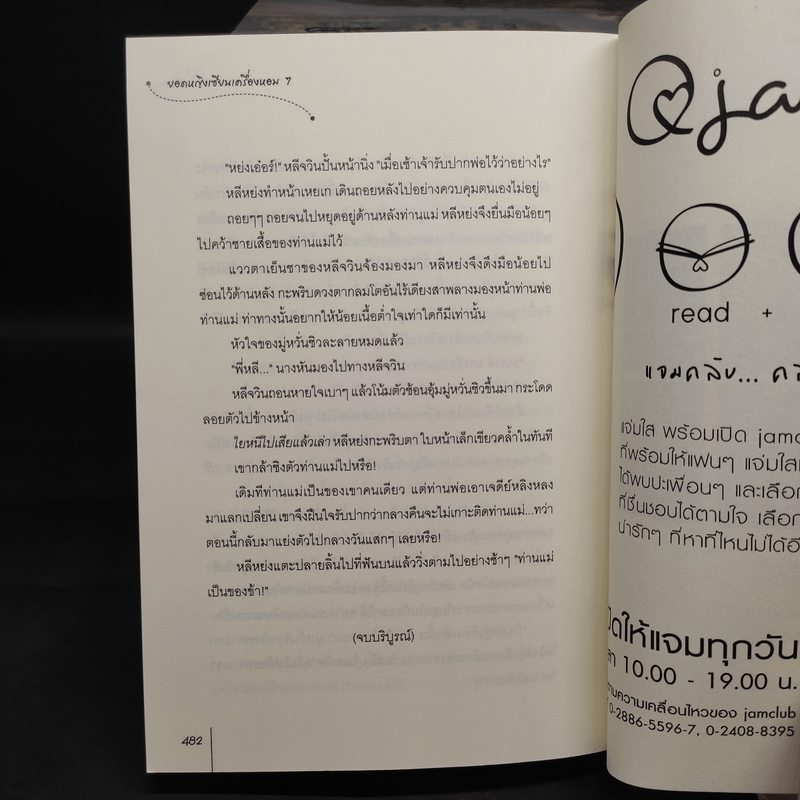 ยอดหญิงเซียนเครื่องหอม 7
"หย่งเอ๋อร์!" หลีจวินปั้นหน้านิ่ง "เมื่อเช้าเจ้ารับปากพ่อไว้ว่าอย่างไร"
หลีหย่งทำหน้าเหยเก เดินถอยหลังไปอย่างควบคุมตนเองไม่อยู่
ถอยๆๆ ถอยจนไปหยุดอยู่ด้านหลังท่านแม่ หลีหย่งจึงยื่นมือน้อยๆ
ไปคว้าชายเสื้อของท่านแม่ไว้
แววตาเย็นชาของหลีจวินจ้องมองมา หลีหย่งจึงดึงมือน้อยไป
ซ่อนไว้ด้านหลัง กะพริบดวงตากลมโตอันไร้เดียงสาพลางมองหน้าท่านพ่อ
ท่านแม่ ท่าทางนั้นอยากให้น้อยเนื้อต่ำใจเท่าใดก็มีเท่านั้น
หัวใจของมู่หวั่นชิวละลายหมดแล้ว
"พี่หลี..." นางหันมองไปทางหลีจวิน
หลีจวินถอนหายใจเบาๆ แล้วโน้มตัวช้อนอุ้มมู่หวั่นชิวขึ้นมา กระโดด
ลอยตัวไปข้างหน้า
ไยหนีไปเสียแล้วเล่า หลีหย่งกะพริบตา ใบหน้าเล็กเขียวคล้ำในทันที
เขากล้าชิงตัวท่านแม่ไปหรือ!
เดิมทีท่านแม่เป็นของเขาคนเดียว แต่ท่านพ่อเอาเจดีย์หลิงหลง
มาแลกเปลี่ยน เขาจึงฝืนใจรับปากว่ากลางคืนจะไม่เกาะติดท่านแม่...ทว่า
ตอนนี้กลับมาแย่งตัวไปกลางวันแสกๆ เลยหรือ!
หลีหย่งแตะปลายลิ้นไปที่ฟันบนแล้ววิ่งตามไปอย่างช้าๆ "ท่านแม่
เป็นของข้า!"
(จบบริบูรณ์)
482
@ja
read +
แจมคลับ...
แจ่มใส พร้อมเปิด jamc
ที่พร้อมให้แฟนๆ แจ่มใส
ได้พบปะเพื่อนๆ และเลือก
ที่ชื่นชอบได้ตามใจ เลือก
น่ารักๆ ที่หาที่ไหนไม่ได้
ปิดให้แจมทุกวัน
10.00 - 19.00 น.
ความเคลื่อนไหวของ jamclub
0-2886-5596-7, 0-2408-8395